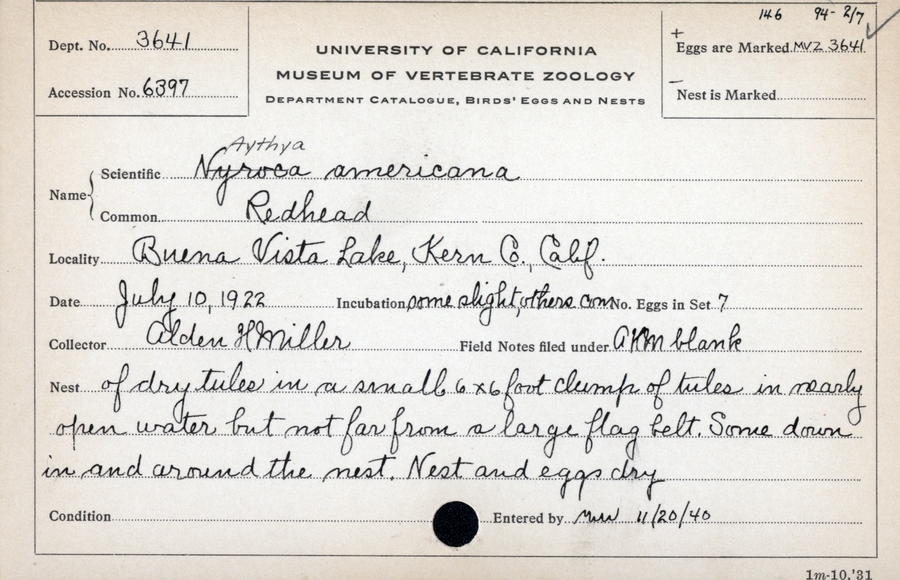 146 94-2/7
Dept. No. 3641
UNIVERSITY OF CALIFORNIA
+ Eggs are Marked MVZ 3641
MUSEUM OF VERTEBRATE ZOOLOGY
Accession No. 6397
DEPARTMENT CATALOGUE, BIRDS' EGGS AND NESTS
– Nest is Marked
Aythya
Name Scientific Nyroca americana
Common Redhead
Locality Buena Vista Lake, Kern Co., Calif.
Date July 10, 1922 Incubation some slight, others com No. Eggs in Set 7
Collector Alden H Miller Field Notes filed under AHM blank
Nest of dry tules in a small 6 x 6 foot clump of tules in nearly
open water but not far from a large flag belt. Some down
in and around the nest. Nest and eggs dry
Condition Entered by 11/20/40
1m-10,'31